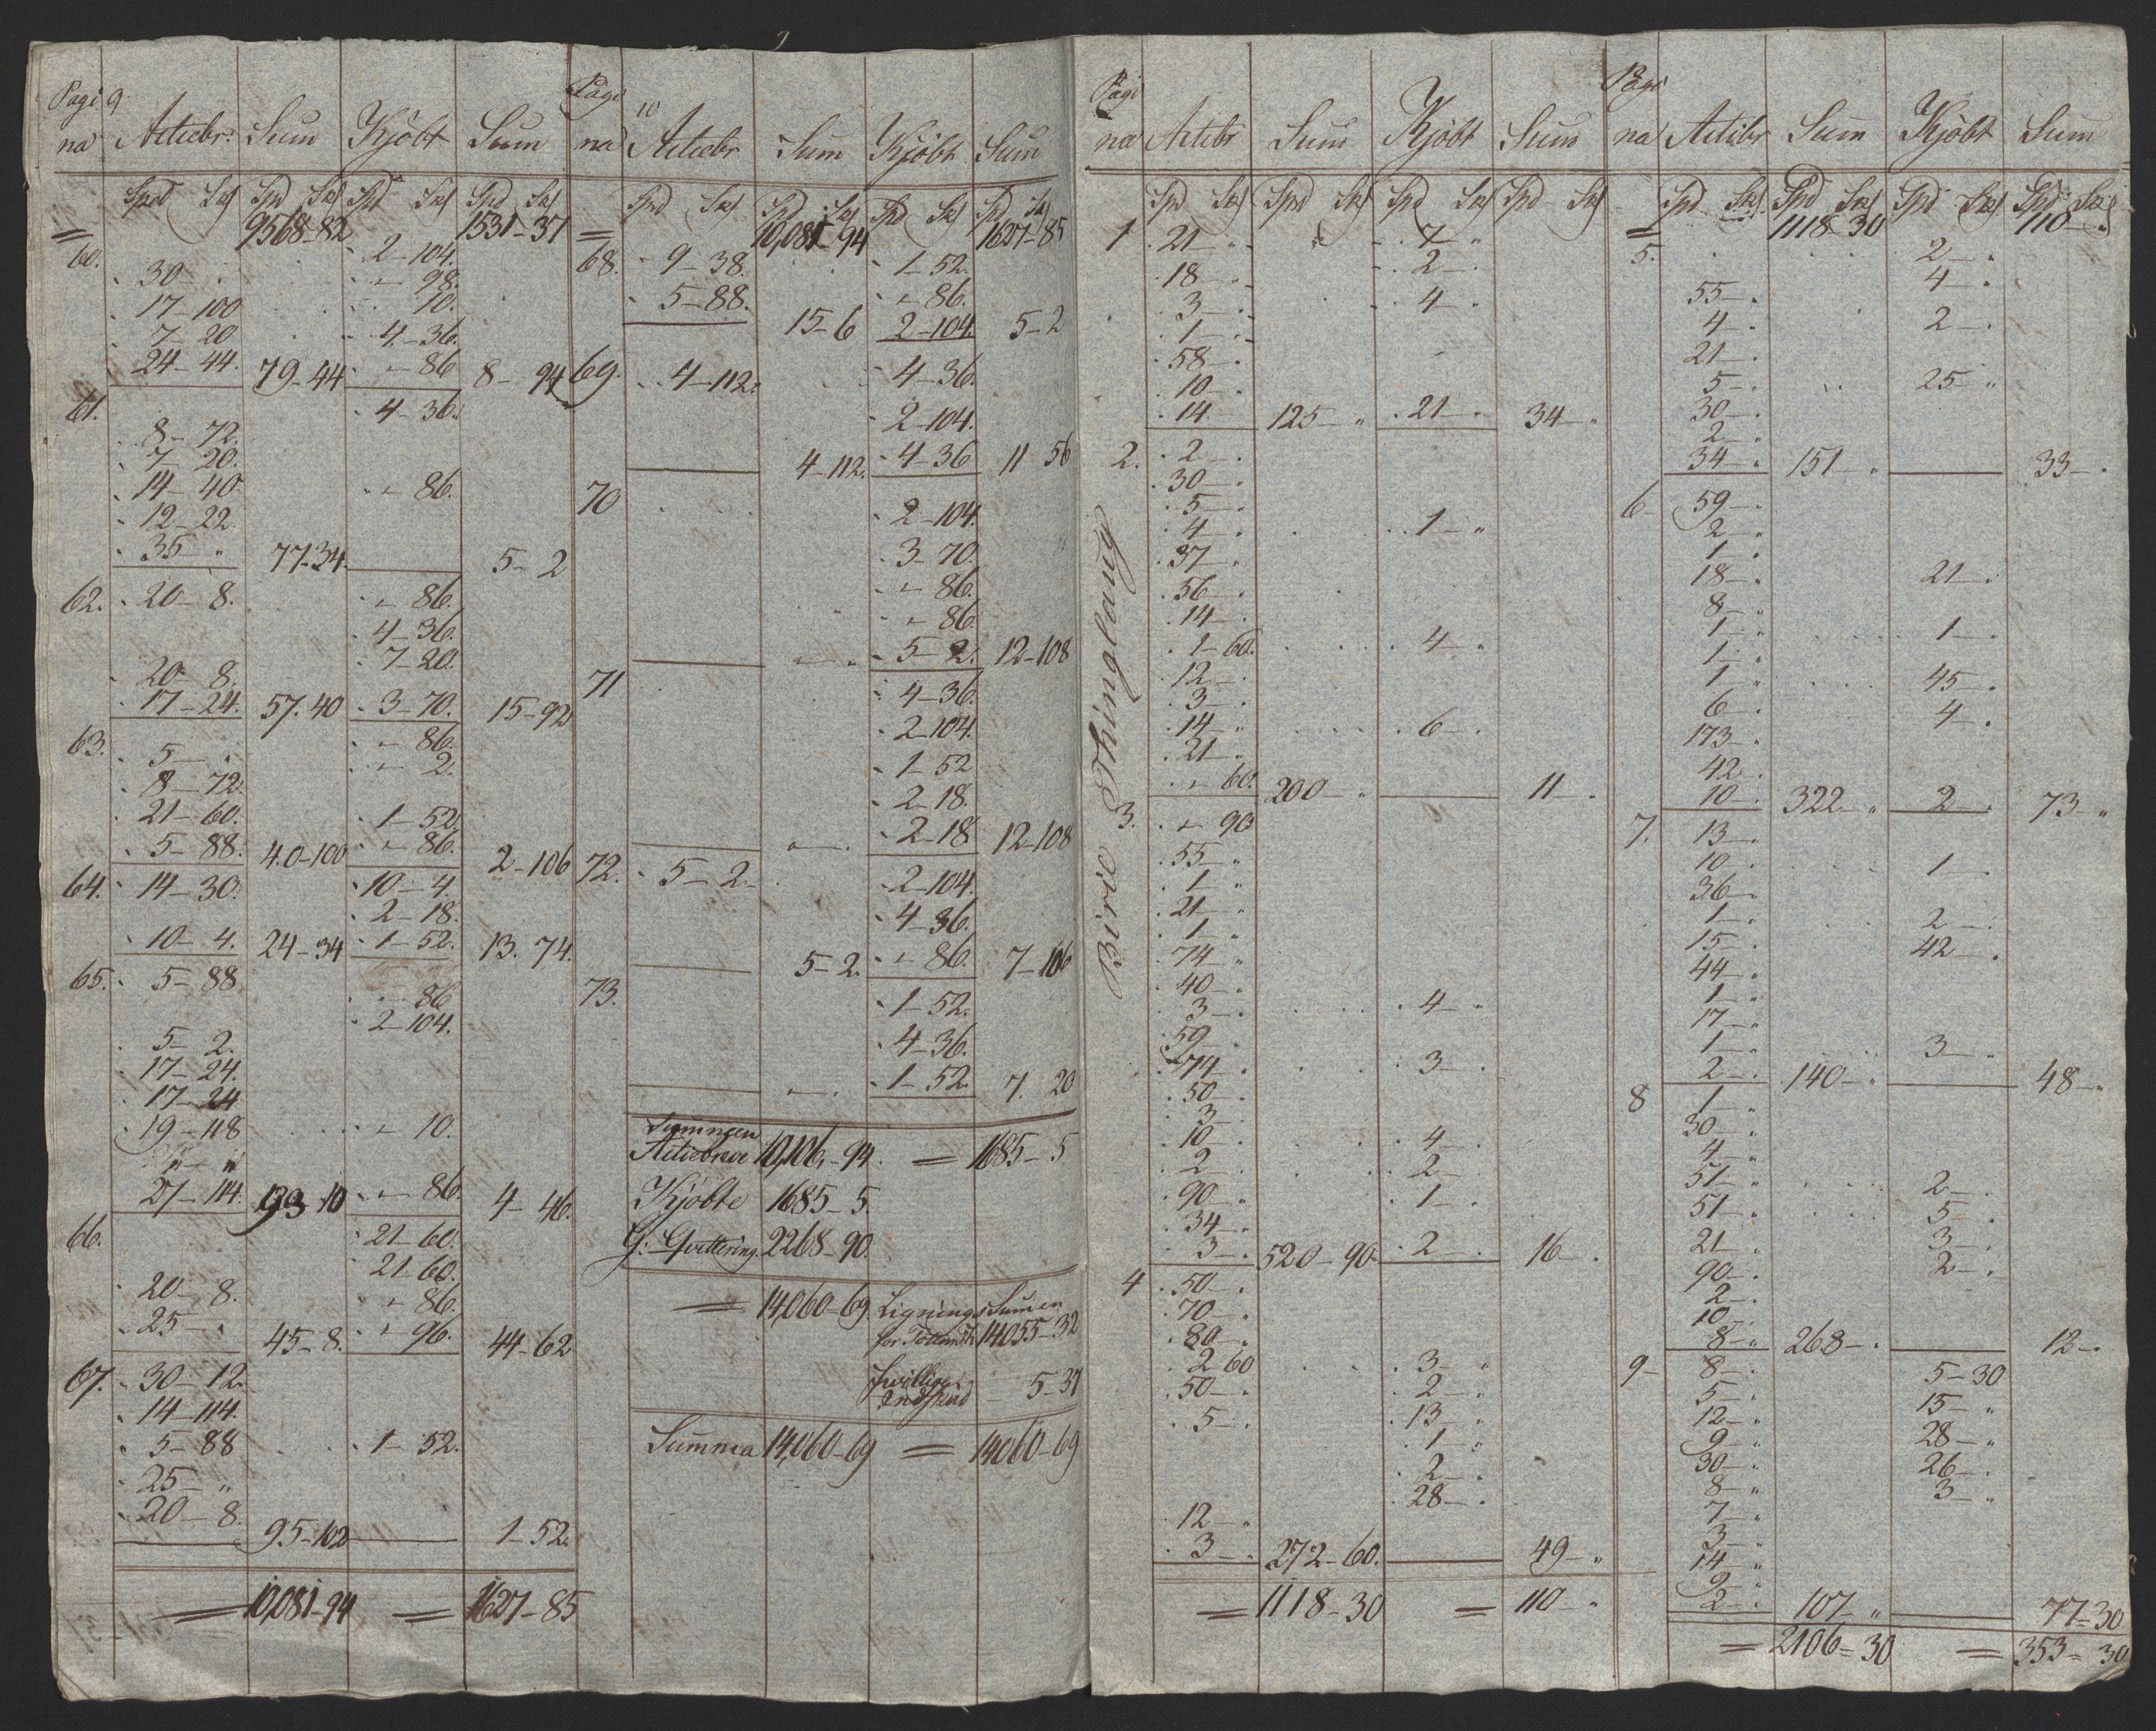 Pagi 9
na Actiebr: Sum Kjöbt Sum
Spd Sk Spd Sk Spd Sk Spd Sk
= 9568-82 1531-37
60. 2-104.
30- . " 98.
17-100 10.
7-20 4-36.
24-44. 79-44 "-86 8-94
61. 4-36.
8-72.
7-20.
14-40. "-86.
12-22
35-" 77-34. 5-2
62. 20-8. "-86.
4-36.
7-20.
20-8.
17-24. 57.40 3-70. 15-92
63. "-86.
5-" "-2.
8-72.
21-60. 1-52
5-88. 40-100 "-86. 2-106
64. 14-30. 10-4.
2-18.
10-4. 24-34 1-52. 13.74.
65. 5-88
86
2-104.
5-2.
17-24.
17-24
19-118 "-10.
"-"
27-114. 93-10 "-86. 4-46.
66. 21-60.
21-60.
20-8. "-86.
25-" 45-8. "-96. 44-62
67. 30-12.
14-114.
5-88 1-52.
25-"
20-8. 95-102 1-52.
= 10,081-94 = 1627-85
Pagi 10
na Actiebr Sum Kjöbt Sum
Spd Sk Spd Sk Spd Sk Spd Sk
= 10,081-94 1627-85
68. 9-38. 1-52.
5-88. "-86.
15-6 2-104. 5-2
69. 4-112. 4-36.
2-104.
4-112. 4-36 11-56
70 2-104.
3-70.
"-86.
"-86.
"-" 5-2. 12-108
71 4-36.
2-104.
1-52
2-18.
"-" 2-18 12-108
72. 5-2. 2-104.
4-36.
5-2. "-86. 7-106
73. 1-52.
4-36.
"-" 1-52. 7.20
Summen
Actiebreve 10,106-94. = 1685-5
Kjöbte 1685-5.
G: Qvittering. 2268-90.
= 14,060-69 Lignings Sumen
for Totten 14055-32
frivillige
Indskud 5-37
Summa 14,060-69 = 14060-69
Pagi
na Actibr Sum Kjöbt Sum
Spd Sk Spd Sk Spd Sk Spd Sk
Biri Thinglaug
1 21-" 7-"
18-" 2-"
3-" 4-"
1-"
58-"
10-"
14. 125-" 21-" 34-"
2. 2-"
30-"
5-"
4-" 1-"
37-"
56-"
14-"
1-60. 4-"
12-"
3-"
14-" 6-"
21-"
"-60. 200-" 11-"
3. "-90
55-"
1-"
21-"
1-"
74-"
40-"
3-" 4-"
59-"
74-" 3-"
50-"
3-"
10-" 4-"
2-" 2-"
90-" 1-"
34-"
3-" 520-90. 2-" 16-"
4 50-"
70-"
80-"
2 60 3-"
50-" 2-"
5-" 13-"
1-"
2-"
28-"
12-"
3-" 272-60. 49-"
= 1118-30 = 110-"
Pagi
na Actibr Sum Kjöbt Sum
Spd Sk Spd Sk Spd Sk Spd Sk
= 1118-30 110-"
5. 2-"
55-" 4-"
4-" 2-"
21-"
5-" 25-"
30-"
2-"
34-" 151-" 33-"
6 59-"
2-"
1-"
18-" 21-"
8-"
1-" 1-"
1-"
1-" 45-"
6-" 4-"
173-"
42-"
10-" 322-" 2-" 73-"
7. 13-"
10-" 1-"
36-"
1-" 2-"
15-" 42-"
44-"
1-"
17-"
1-" 3-"
2-" 140-" 48-"
8 1-"
30-"
4-"
51-" 2-"
51-" 5-"
21-" 3-"
90-" 2-"
2-"
10-"
8-" 268-" 12-"
9- 8-" 5-30
5-" 15-"
12-" 28-"
9-" 26-"
30-" 3-"
8-"
7-"
3-"
14-"
9-"
2-" 107-" 77-30
= 2106-30 = 353-30